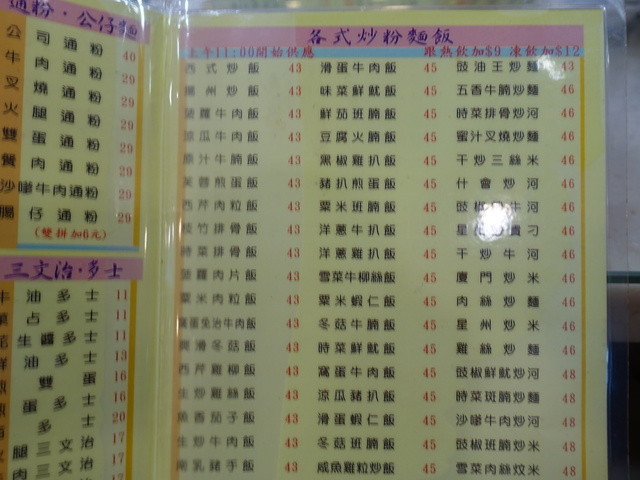 通粉·公仔麵
公司通粉 40
牛肉通粉 29
叉燒通粉 29
火腿通粉 29
雙蛋通粉 29
餐肉通粉 29
沙嗲牛肉通粉 29
腸仔通粉 29
(雙拼加6元)
三文治·多士
牛油多士 11
占多士 11
生醬多士 11
油多士 13
雙蛋 16
蛋多士 16
多士 20
腿三文治 17
肉三文治 17
各式炒粉麵飯
上午11:00開始供應 跟熱飲加$9 凍飲加$12
西式炒飯 43
揚州炒飯 43
菠蘿牛肉飯 43
涼瓜牛肉飯 43
原汁牛腩飯 43
芙蓉煎蛋飯 43
西芹肉粒飯 43
枝竹排骨飯 43
時菜排骨飯 43
菠蘿肉片飯 43
粟米肉粒飯 43
窩蛋免治牛肉飯 43
爽滑冬菇飯 43
西芹雞柳飯 43
生炒雞絲飯 43
魚香茄子飯 43
生炒牛肉飯 43
南乳豬手飯 43
滑蛋牛肉飯 45
味菜鮮魷飯 45
鮮茄班腩飯 45
豆腐火腩飯 45
黑椒雞扒飯 45
豬扒煎蛋飯 45
粟米班腩飯 45
洋蔥牛扒飯 45
洋蔥雞扒飯 45
雪菜牛柳絲飯 45
粟米蝦仁飯 45
冬菇牛腩飯 45
時菜鮮魷飯 45
窩蛋牛肉飯 45
涼瓜豬扒飯 45
滑蛋蝦仁飯 45
冬菇班腩飯 45
咸魚雞粒炒飯 45
豉油王炒麵 43
五香牛腩炒麵 46
時菜排骨炒河 46
蜜汁叉燒炒麵 46
干炒三絲米 46
什會炒河 46
豉椒牛河 46
星刁 46
干炒牛河 46
廈門炒米 46
肉絲炒麵 46
星州炒米 46
雞絲炒麵 46
豉椒鮮魷炒河 48
時菜斑腩炒麵 48
沙嗲牛肉炒河 48
豉椒班腩炒米 48
雪菜肉絲炆米 48